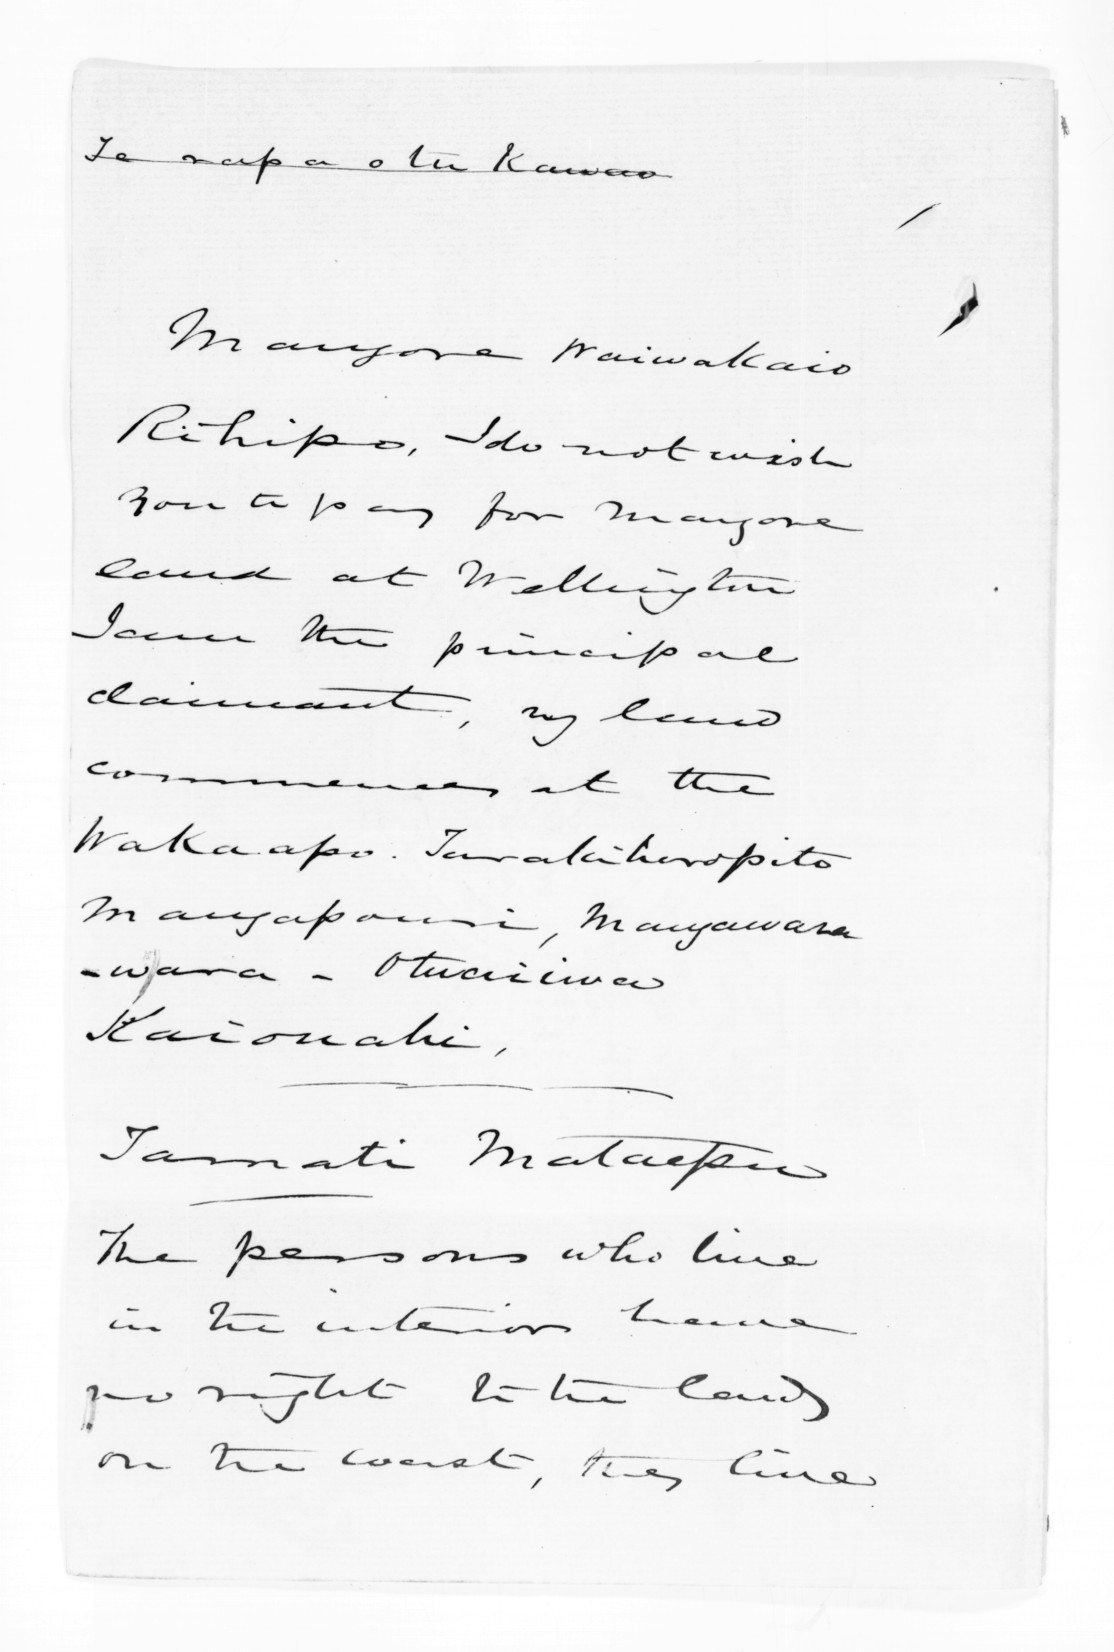 Te rapa o tu Kawao
Mangore Waiwakaio
Rihipo, I do not wish
you to pay for Mangore
land at Wellington
I am the principal
claimant, my land
commences at the
Wakaapo. Tarakihoropito
Mangapouri, Mangawara
-wara - Otuaiiwa
Kaionahi,
Tamati Mataepu
The persons who live
in the interior have
no right to the lands
on the coast, they live